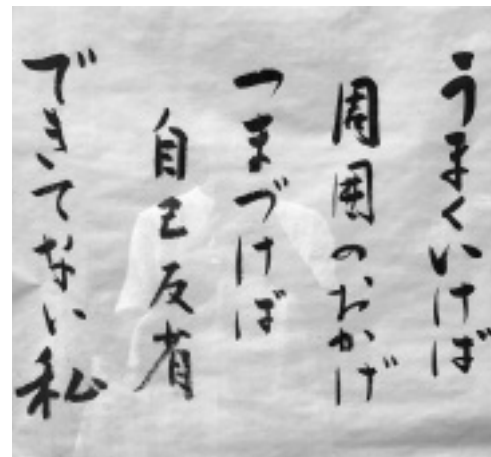 うまくいけば
周囲のおかげ
つまづけば
自己反省
できてない私